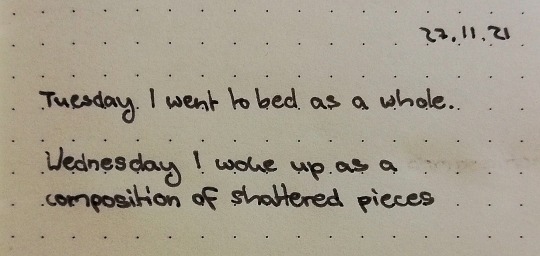 23.11.21
Tuesday. I went to bed as a whole.
Wednesday I woke up as a
composition of shattered pieces